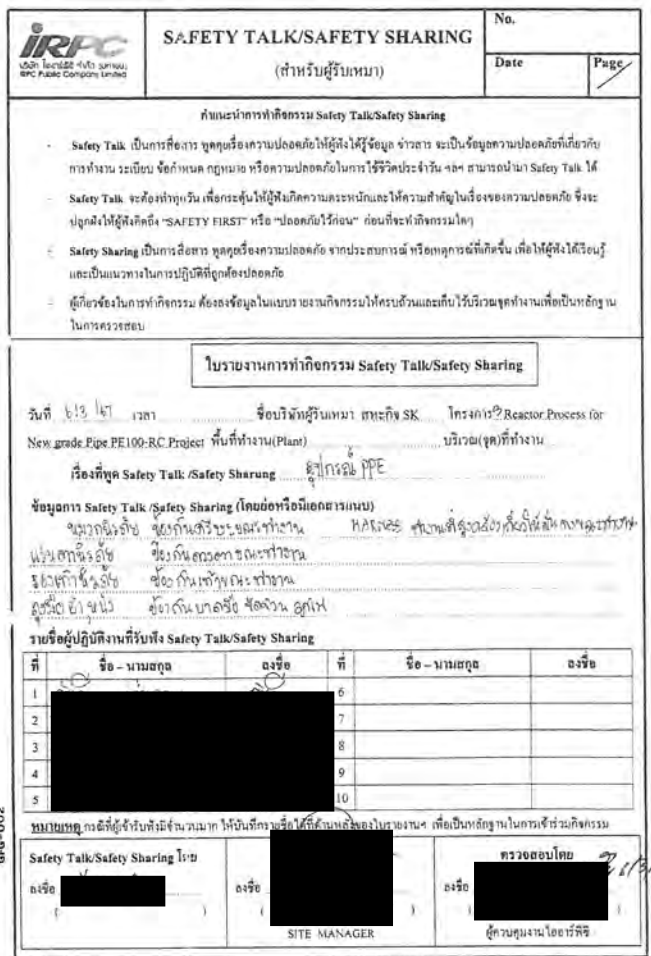 iRPC
บริษัท ไออาร์พีซี จำกัด (มหาชน)
IRPC Public Company Limited
SAFETY TALK/SAFETY SHARING
(สำหรับผู้รับเหมา)
No.
Date
Page
คำแนะนำการทำกิจกรรม Safety Talk/Safety Sharing
- Safety Talk เป็นการสื่อสาร พูดคุยเรื่องความปลอดภัยให้ผู้ฟังได้รู้ข้อมูล ข่าวสาร จะเป็นข้อมูลความปลอดภัยที่เกี่ยวกับ
การทำงาน ระเบียบ ข้อกำหนด กฎหมาย หรือความปลอดภัยในการใช้ชีวิตประจำวัน ฯลฯ สามารถนำมา Safety Talk ได้
- Safety Talk จะต้องทำทุกวัน เพื่อกระตุ้นให้ผู้ฟังเกิดความตระหนักและให้ความสำคัญในเรื่องของความปลอดภัย ซึ่งจะ
ปลูกฝังให้ผู้ฟังคิดถึง "SAFETY FIRST" หรือ "ปลอดภัยไว้ก่อน" ก่อนที่จะทำกิจกรรมใดๆ
- Safety Sharing เป็นการสื่อสาร พูดคุยเรื่องความปลอดภัย จากประสบการณ์ หรือเหตุการณ์ที่เกิดขึ้น เพื่อให้ผู้ฟังได้เรียนรู้
และเป็นแนวทางในการปฏิบัติที่ถูกต้องปลอดภัย
- ผู้เกี่ยวข้องในการทำกิจกรรม ต้องลงข้อมูลในแบบรายงานกิจกรรมให้ครบถ้วนและเก็บไว้บริเวณจุดทำงานเพื่อเป็นหลักฐาน
ในการตรวจสอบ
ใบรายงานการทำกิจกรรม Safety Talk/Safety Sharing
วันที่ 6/3/67 เวลา ชื่อบริษัทผู้รับเหมา สหะกิจ SK โครงการ Reactor Process for
New grade Pipe PE100-RC Project พื้นที่ทำงาน(Plant) บริเวณ(จุด)ที่ทำงาน
เรื่องที่พูด Safety Talk /Safety Sharung อุปกรณ์ PPE
ข้อมูลการ Safety Talk /Safety Sharing (โดยย่อหรือมีเอกสารแนบ)
หมวกนิรภัย ป้องกันศรีษะขณะทำงาน
แว่นตานิรภัย ป้องกันดวงตาขณะทำงาน
รองเท้านิรภัย ป้องกันเท้าขณะทำงาน
ถุงมือ ป้องกัน
รายชื่อผู้ปฏิบัติงานที่รับฟัง Safety Talk/Safety Sharing
ที่ ชื่อ – นามสกุล ลงชื่อ ที่ ชื่อ – นามสกุล ลงชื่อ
1 6
2 7
3 8
4 9
5 10
หมายเหตุ กรณีที่ผู้เข้ารับฟังมีจำนวนมาก ให้บันทึกรายชื่อได้ที่ด้านหลังของใบรายงานฯ เพื่อเป็นหลักฐานในการเข้าร่วมกิจกรรม
Safety Talk/Safety Sharing โดย
ตรวจสอบโดย
ลงชื่อ ลงชื่อ ลงชื่อ
( ) ( ) ( )
SITE MANAGER ผู้ควบคุมงานไออาร์พีซี